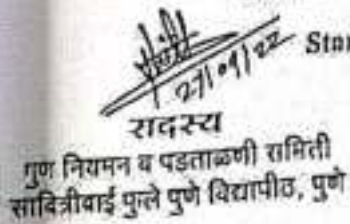 27/09/22 Star
सदस्य
गुण नियमन व पडताळणी समिती
सावित्रीबाई फुले पुणे विद्यापीठ, पुणे